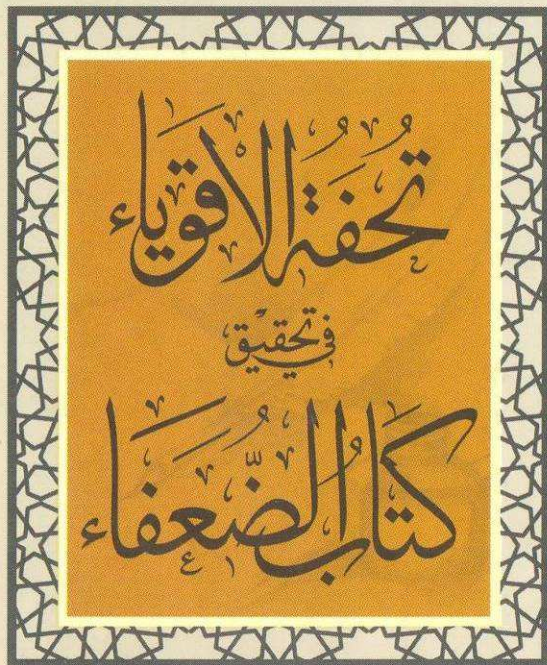 تُحفَةُ الأقوياء
في تحقيق
كتابُ الضُّعَفاء